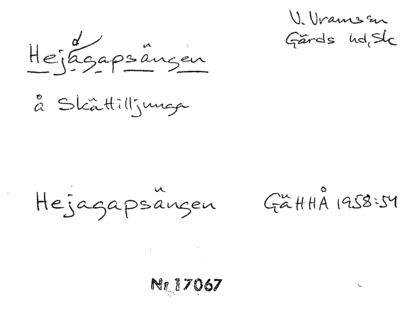 V. Vramssn
Gärds hd, Sk
d
Hejagapsängen
å Skättilljunga
Hejagapsängen GäHHÅ 1958:54
Nr 17067